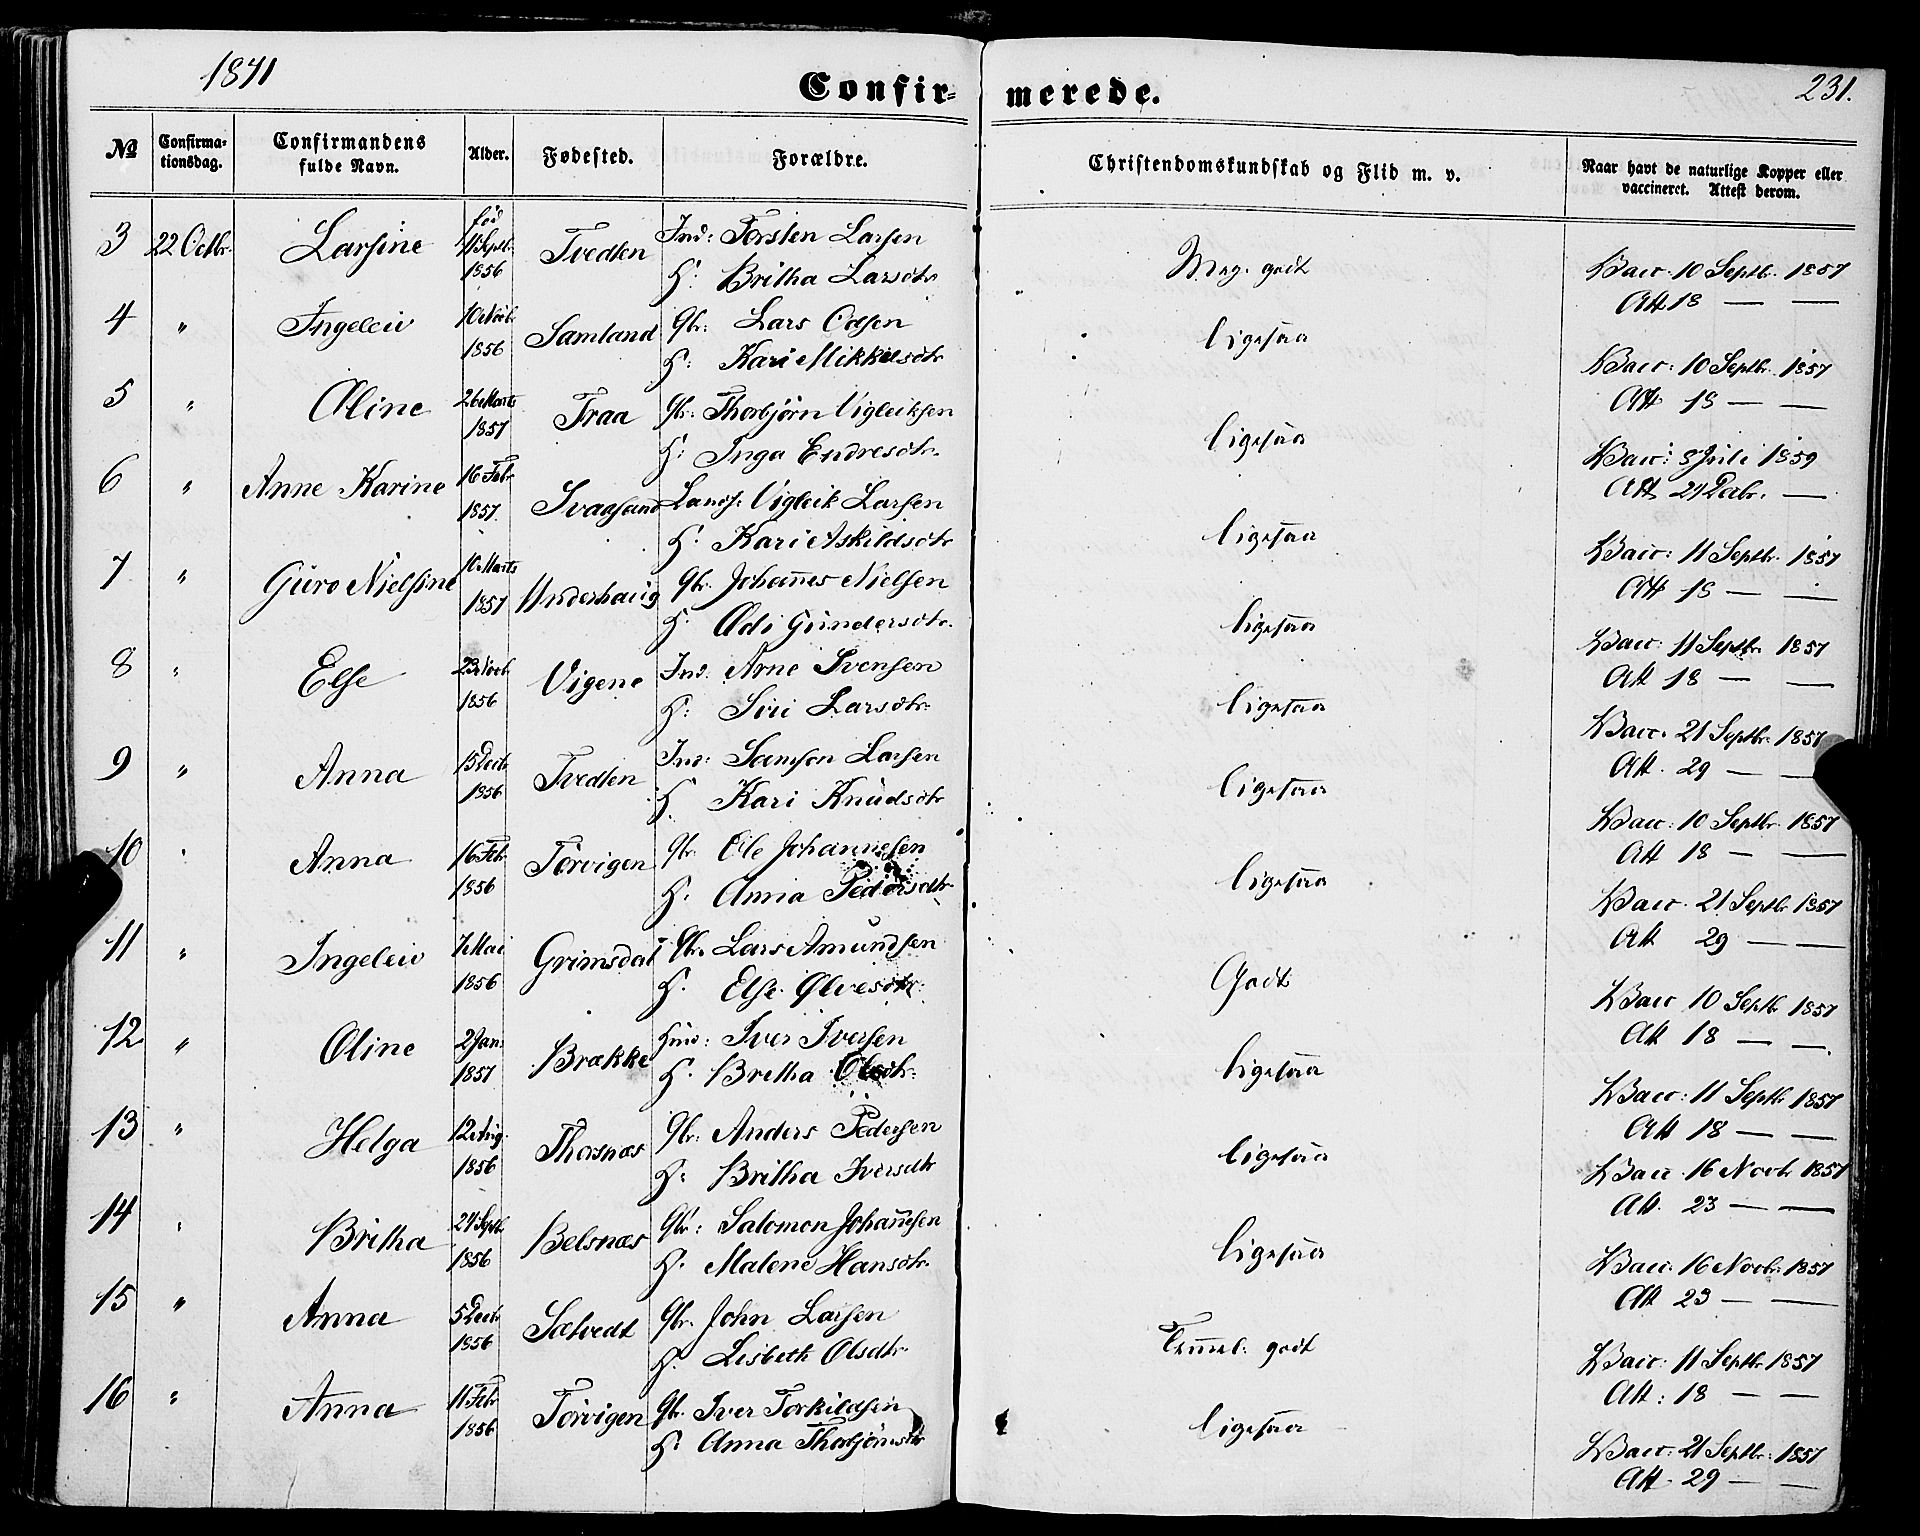 1871
Confir- merede.
231.
№ Confirma- Confirmandens Alder. Fødested. Forældre. Christendomskundskab og Flid m. v. Naar havt de naturlige Kopper eller
tionsdag. fulde Navn. vaccineret. Attest derom.
3 22 Octbr. Larsine fød 11 Septbr. 1856 Tvedten Ind: Torsten Larsen Meg. godt Vacc. 10 Septbr. 1857
H: Britha Larsdtr. Att 18 — —
4 " Ingeleiv 10 Novbr. 1856 Samland Gbr: Lars Odsen ligesaa Vacc: 10 Septbr. 1857
H: Kari Mikkelsdtr Att 18 — —
5 " Oline 26 Marts 1857 Traa Gbr: Thorbjørn Vigleiksen ligesaa Vacc: 8 Juli 1859
H: Inga Endresdtr. Att 21 Decbr. —
6 " Anne Karine 16 Febr 1857. Svaasand Landh: Vigleik Larsen ligesaa Vacc: 11 Septbr. 1857
H. Kari Askildsdtr Att 18 — —
7 " Guro Nielsine 10 Marts 1857 Underhaug Gbr. Johannes Nielsen ligesaa Vacc: 11 Septbr. 1857
H. Odi Gundersdtr. Att 18 — —
8 " Else 23 Novb. 1856 Vigene Ind. Arne Svensen ligesaa Vacc. 21 Septbr. 1857
H: Siri Larsdtr. Att. 29 — —
9 " Anna 15 Decb 1856 Tvedten Ind: Samson Larsen ligesaa Vacc: 10 Septbr. 1857
H. Kari Knudsdtr Att 18 — —
10 " Anna 16 Febr 1856 Torvigen Gbr. Ole Johannesen ligesaa Vacc. 21 Septbr 1857
H. Anna Pedersdtr Att 29 — —
11 " Ingeleiv 7 Mai 1856 Grimsdal Gbr. Lars Amundsen Godt Vacc 10 Septb 1857
H. Else Ølvesdtr. Att 18 — —
12 " Oline 2 Jan: 1857 Brække Huusm: Iver Iversen ligesaa Vacc: 11 Septbr 1857
H. Britha Olsdtr. Att 18 — —
13 " Helga 12 Aug. 1856 Thorsnæs Gbr: Anders Pedersen ligesaa Vacc. 16 Novbr. 1857
H. Britha Iversdtr Att. 23 — —
14 " Britha 24 Septb. 1856 Belsnæs Gbr: Salomon Johannesen ligesaa Vacc. 16 Novbr. 1857
H. Malene Hansdtr. Att 23 — —
15 " Anna 5 Decbr 1856 Sætvedt Gbr. John Larsen Temmel. godt Vacc: 11 Septbr 1857
H. Lisbeth Olsdtr. Att: 18 — —
16 " Anna 11 Febr 1856 Torvigen Gbr. Iver Torkildsen ligesaa Vacc: 21 Septbr: 1857
H. Anna Thorbjørnsdtr Att. 29 — —